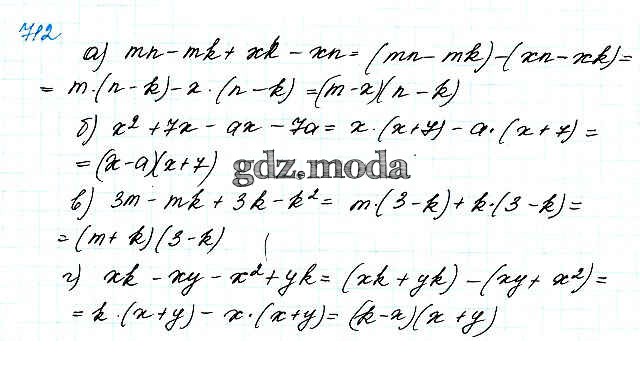 712
а) mn - mk + xk - xn = (mn - mk) - (xn - xk) =
= m·(n - k) - x·(n - k) = (m - x)(n - k)
б) x² + 7x - ax - 7a = x·(x + 7) - a·(x + 7) =
= (x - a)(x + 7)
gdz.moda
в) 3m - mk + 3k - k² = m·(3 - k) + k·(3 - k) =
= (m + k)(3 - k)
г) xk - xy - x² + yk = (xk + yk) - (xy + x²) =
= k·(x + y) - x·(x + y) = (k - x)(x + y)